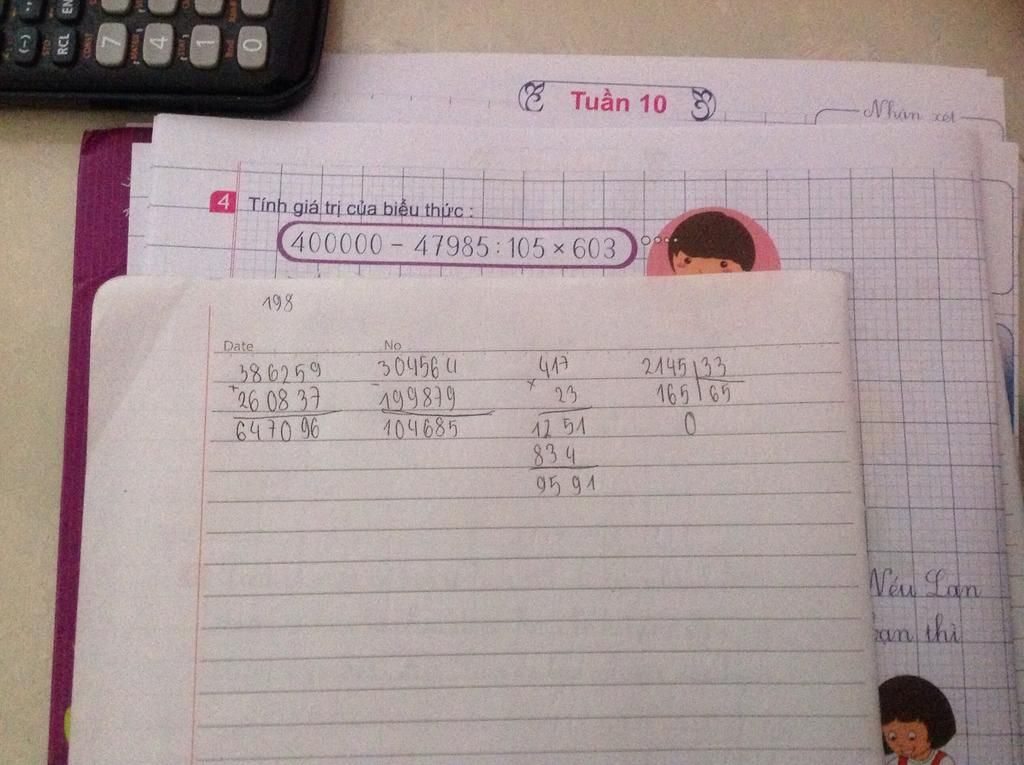 (-) STO RCL ENG
CONST 7 4 1 0
Tuần 10
Nhận xét
4 Tính giá trị của biểu thức :
400000 - 47985 : 105 × 603
198
Date No
386259 304564 417 2145 33
+ - ×
260837 199879 23 165 65
647096 104685 1251 0
834
9591
Nếu Lan
Lan thì